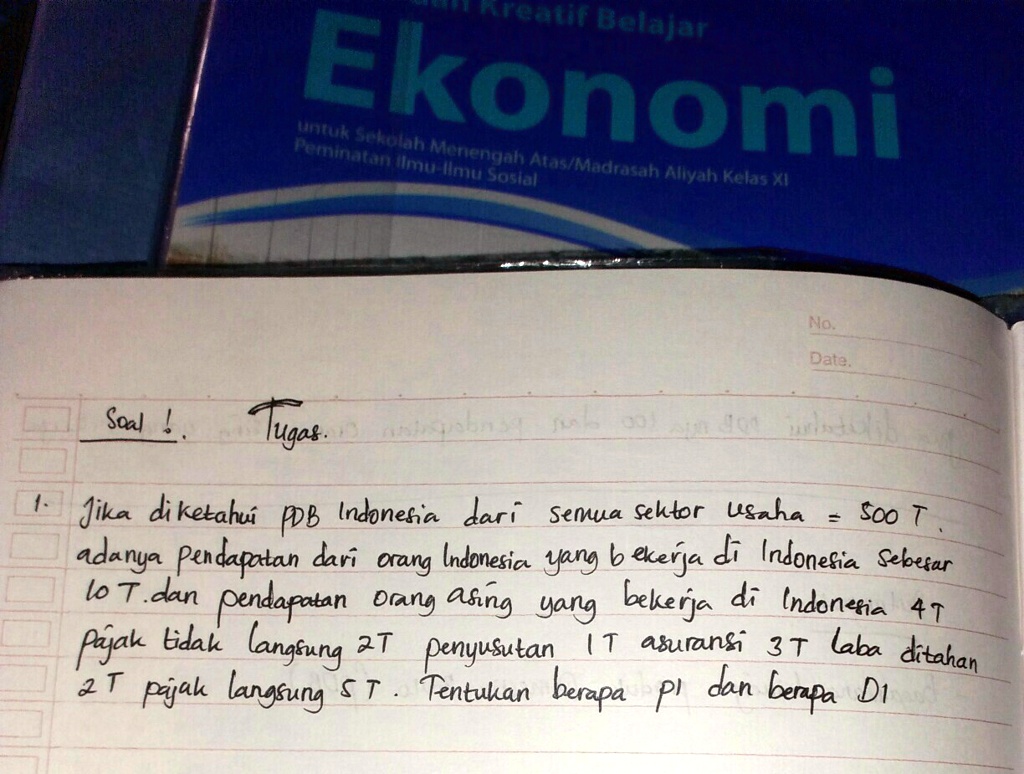 dan Kreatif Belajar
Ekonomi
untuk Sekolah Menengah Atas/Madrasah Aliyah Kelas XI
Peminatan Ilmu-Ilmu Sosial
No.
Date.
Soal !. Tugas.
1. Jika diketahui PDB Indonesia dari semua sektor usaha = 500 T.
adanya pendapatan dari orang Indonesia yang bekerja di Indonesia sebesar
10 T. dan pendapatan orang asing yang bekerja di Indonesia 4T
pajak tidak langsung 2T penyusutan 1T asuransi 3T laba ditahan
2T pajak langsung 5T Tentukan berapa PI dan berapa DI